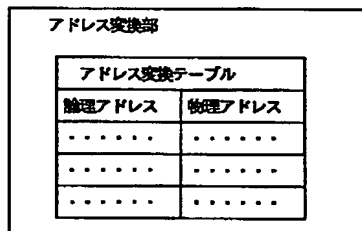 アドレス変換部
アドレス変換テーブル
論理アドレス 物理アドレス
・・・・・・ ・・・・・・
・・・・・・ ・・・・・・
・・・・・・ ・・・・・・